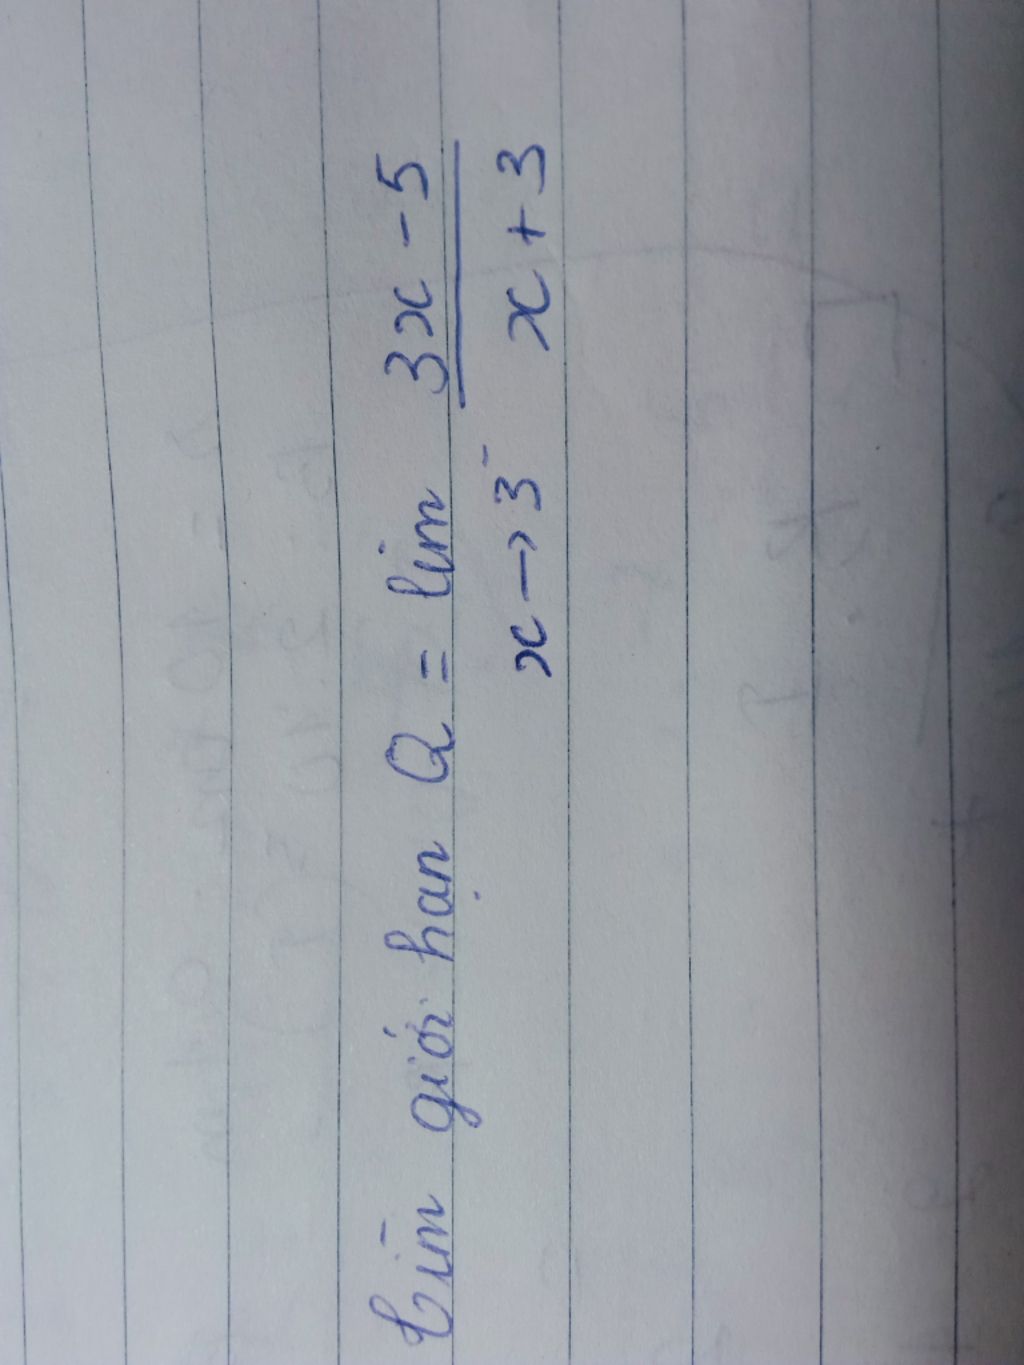 tìm giới hạn Q = lim 3x - 5
x → 3⁻ x + 3